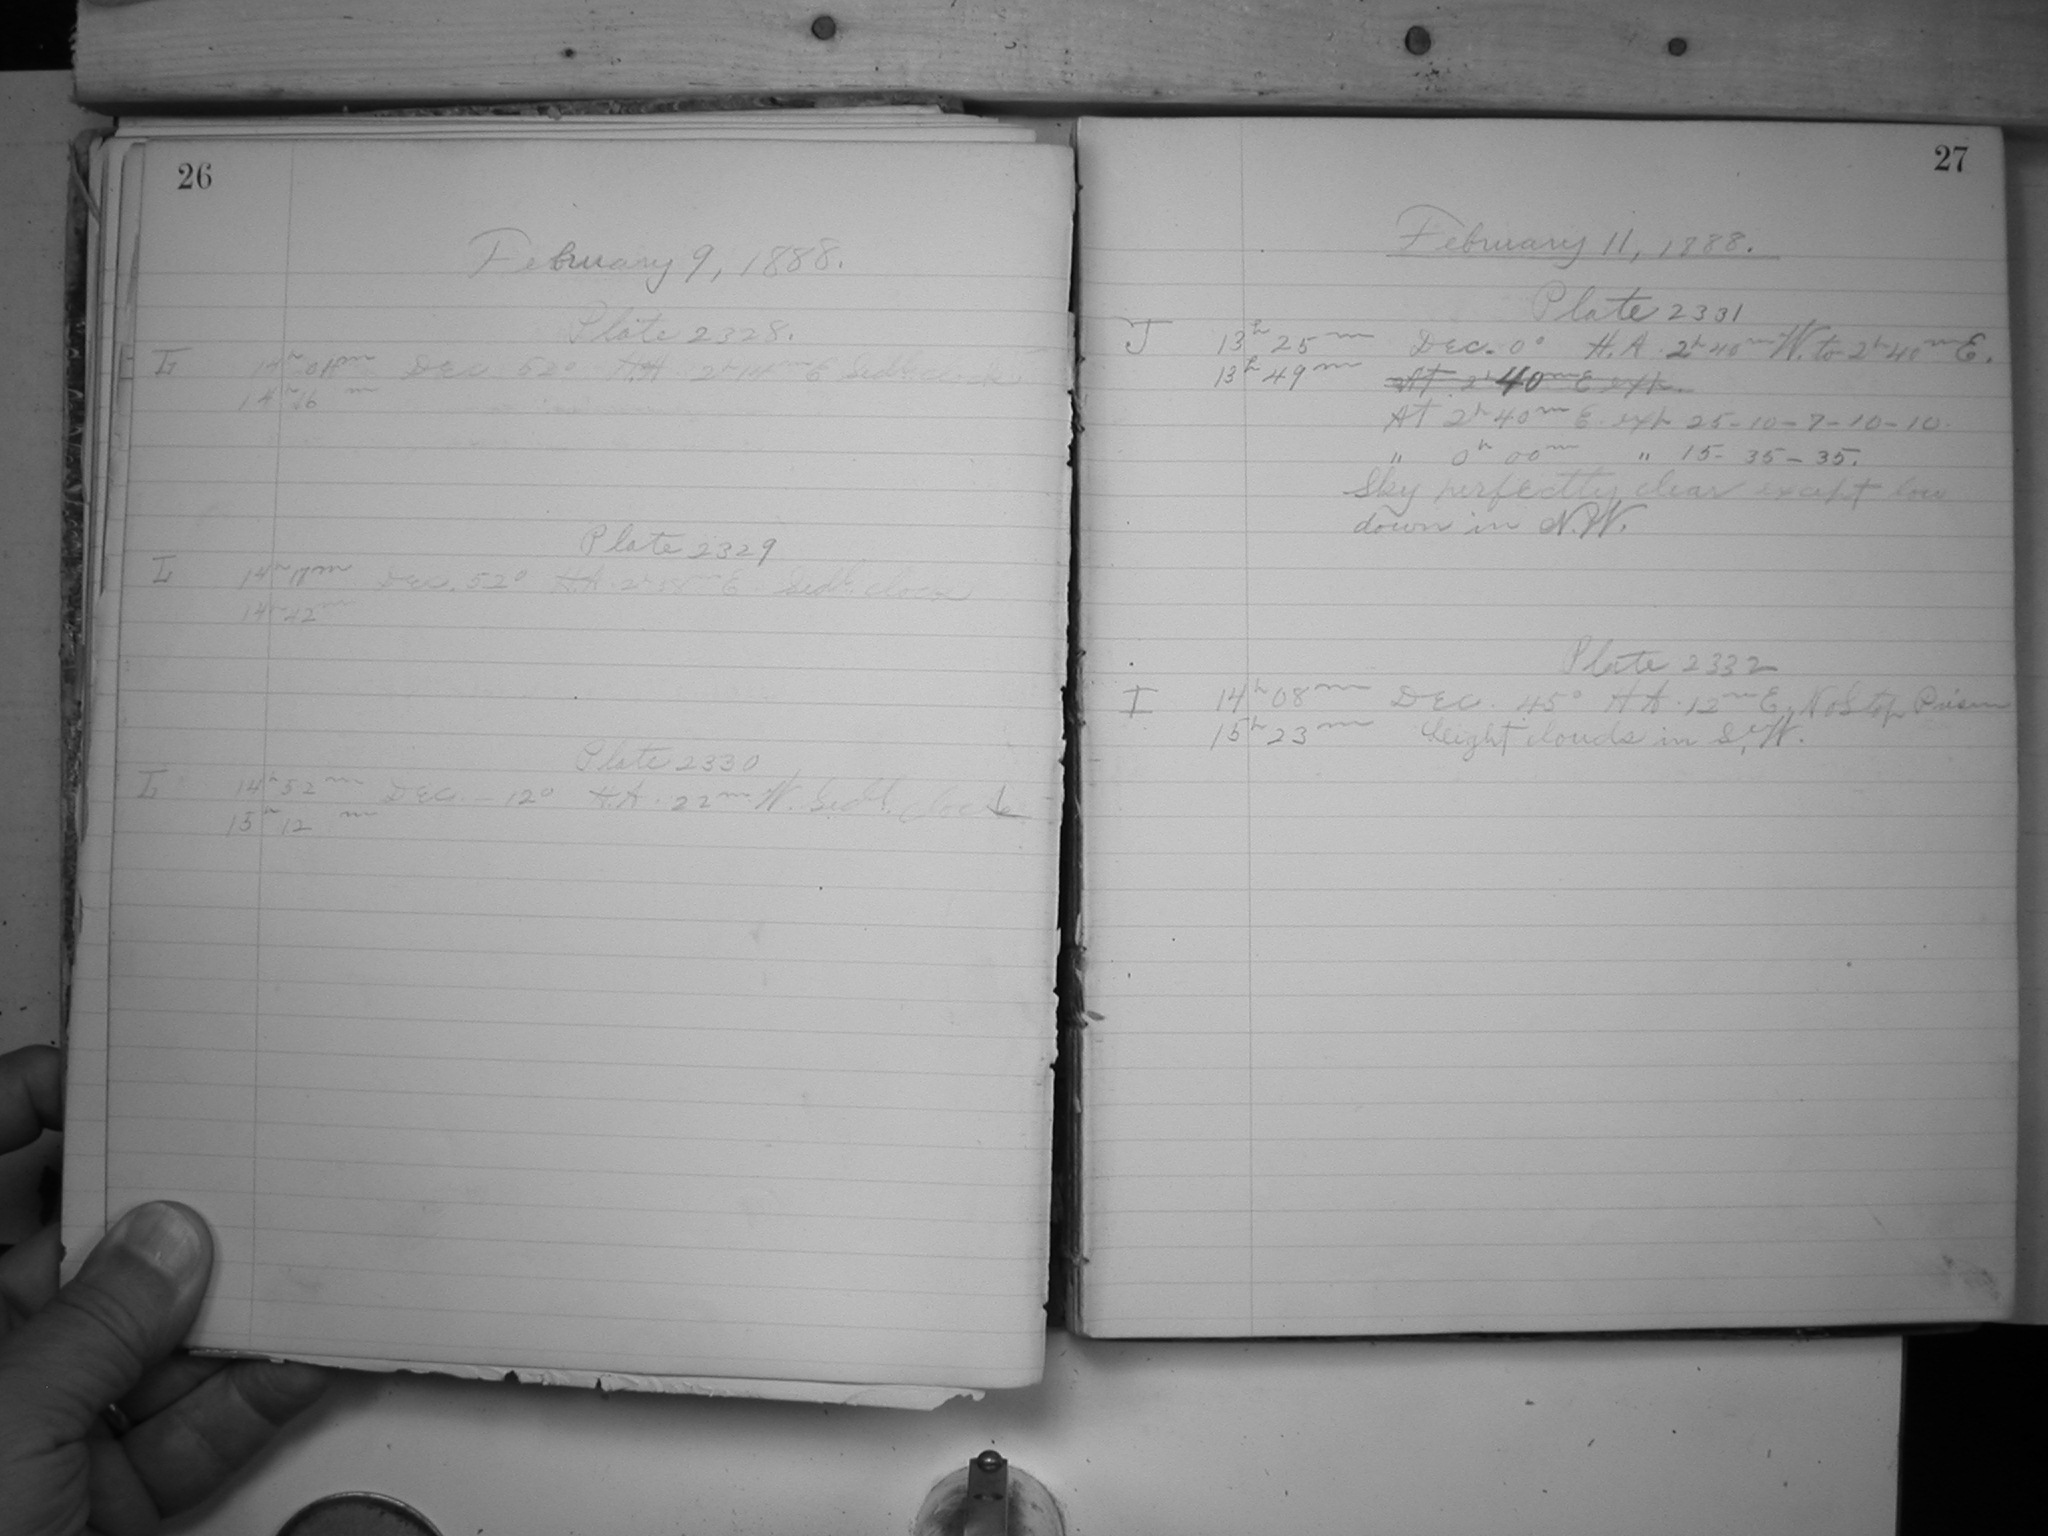 26
February 9, 1888.
Plate 2328.
L 14h 01m Dec 52° H.A. 2h 14m E Sedl. clock
14h 16m
Plate 2329
L 14h 17m Dec. 52° H.A. 2h m E. Sedl. clock
14h 42m
Plate 2330
L 14h 52m Dec. -12° H.A. 22m W. Sedl. clock
15h 12m
27
February 11, 1888.
Plate 2331
J 13h 25m Dec. 0° H.A. 2h 40m W. to 2h 40m E.
13h 49m At 2h 40m E exp.
At 2h 40m E. exp 25-10-7-10-10.
" 0h 00m " 15-35-35.
Sky perfectly clear except low
down in N.W.
Plate 2332
I 14h 08m Dec. 45° H.A. 12m E. No Stop Prism
15h 23m Light clouds in S.W.